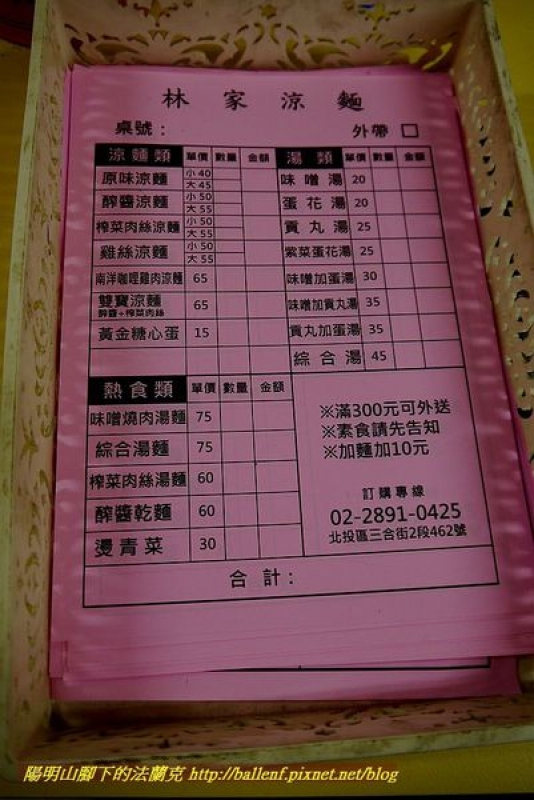 林家涼麵
桌號： 外帶 □
涼麵類 單價 數量 金額
原味涼麵 小 40 大 45
醡醬涼麵 小 50 大 55
榨菜肉絲涼麵 小 50 大 55
雞絲涼麵 小 50 大 55
南洋咖哩雞肉涼麵 65
雙寶涼麵 65
醡醬+榨菜肉絲
黃金糖心蛋 15
湯類 單價 數量 金額
味噌湯 20
蛋花湯 20
貢丸湯 25
紫菜蛋花湯 25
味噌加蛋湯 30
味噌加貢丸湯 35
貢丸加蛋湯 35
綜合湯 45
熱食類 單價 數量 金額
味噌燒肉湯麵 75
綜合湯麵 75
榨菜肉絲湯麵 60
醡醬乾麵 60
燙青菜 30
※滿300元可外送
※素食請先告知
※加麵加10元
訂購專線
02-2891-0425
北投區三合街2段462號
合計：
陽明山腳下的法蘭克 http://ballenf.pixnet.net/blog